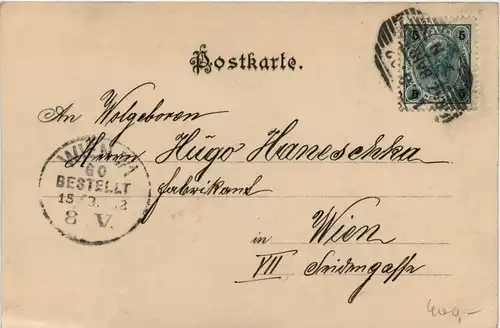 Postkarte.
5 5
An Wolgeboren
Herrn Hugo Haneschka
Fabrikant
in Wien
VII Seidengasse
WIEN 7/1
60
BESTELLT
8 V.